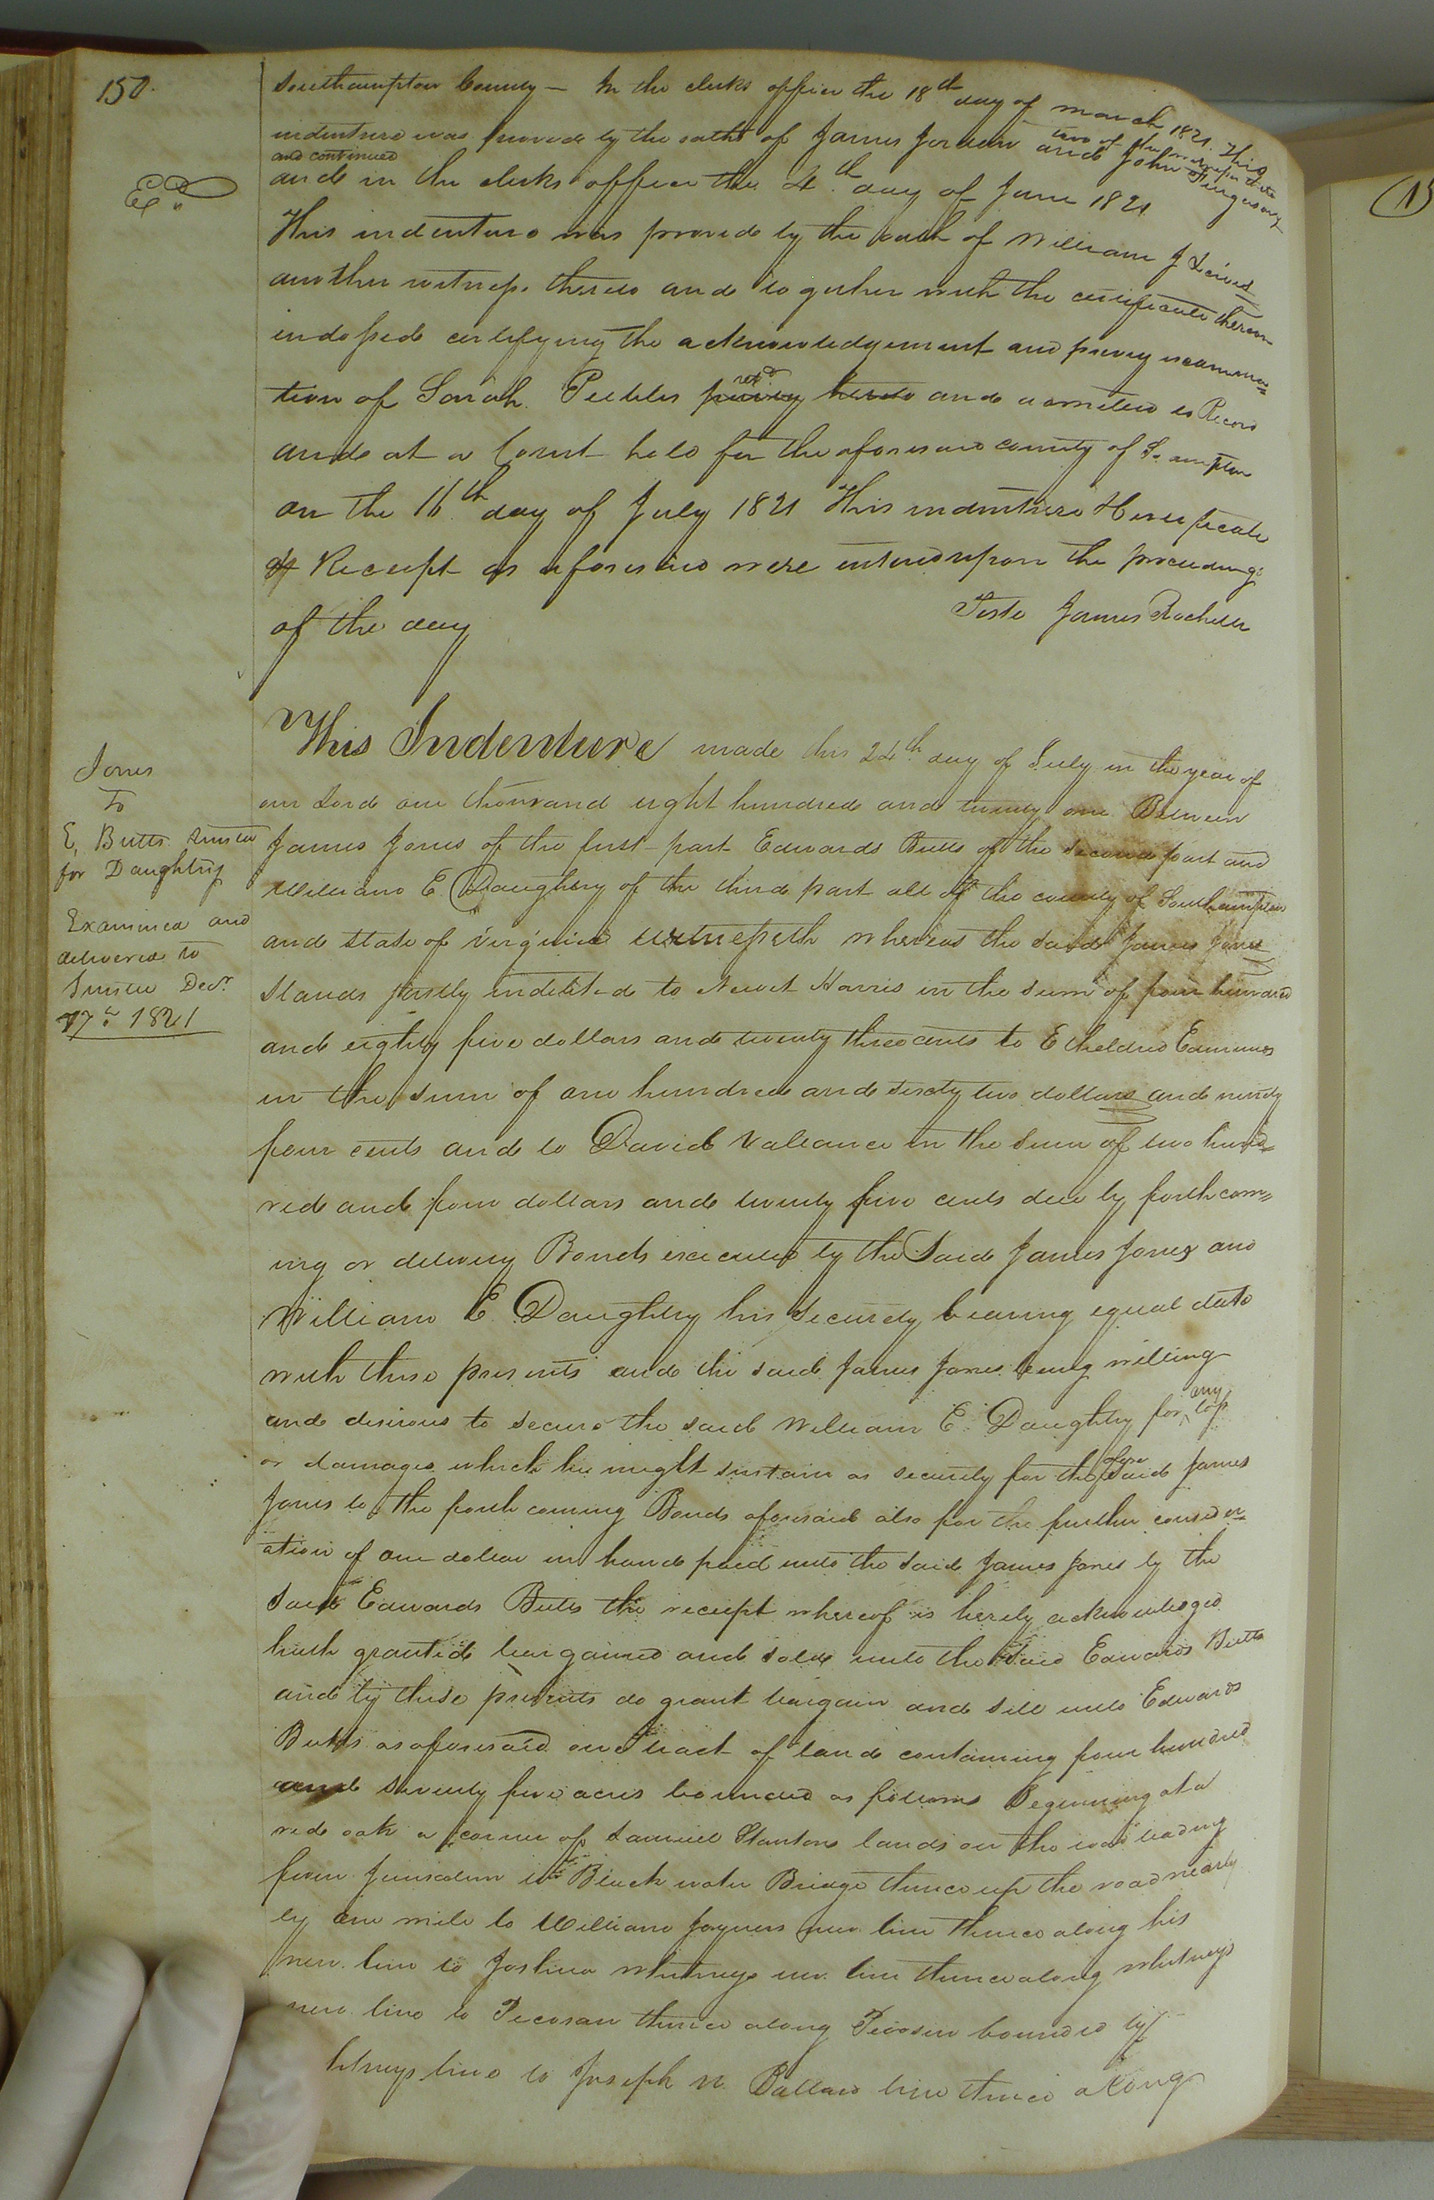 150.
Southampton County — In the clerks office the 18th day of march 1821. This
indenture was proved by the oaths of James Jordan and John Ferguson
two of the witnesses
and continued
and in the clerks office the 4th day of June 1821
This indenture was proved by the oath of William J
another witness thereto and together with the certificate thereon
indossed certifying the acknowledgement and privy examina=
tion of Sarah Peebles privy hereto and admitted to Record
and at a Court held for the aforesaid county of S.ampton
on the 16th day of July 1821 This indenture Certificate
& Receipt as aforesaid were entered upon the proceedings
of the day
Teste James Rochelle
Jones
To
E, Butts Trustee
for Daughtry
Examined and
delivered to
Trustee Decr.
1821
This Indenture made this 24th day of July in the year of
our Lord one thousand eight hundred and twenty one Between
James Jones of the first part Edwards Butts of the second part and
William E Daughtry of the third part all of the county of Southampton
and state of virginia witnesseth whereas the said James Jones
stands justly indebted to Newit Harris in the sum of four hundred
and eighty five dollars and twenty three cents to Etheldred Edmunds
in the sum of one hundred and sixty two dollars and ninety
four cents and to David Vallance in the sum of two hund=
red and four dollars and twenty five cents due by forthcom=
ing or delivery Bonds executed by the Said James Jones and
William E Daughtry his security bearing equal date
with these presents and the said James Jones being willing
and desirous to secure the said William E. Daughtry for any loss
or damages which he might sustain as security for the said James
Jones to the forth coming Bonds aforesaid also for the further consider=
ation of one dollar in hand paid unto the said James Jones by the
said Edwards Butts the receipt whereof is hereby acknowledged
hath granted bargained and sold unto the said Edwards Butts
and by these presents do grant bargain and sell unto Edwards
Butts as aforesaid one tract of land containing four hundred
and seventy five acres bounded as follows Beginning at a
red oak a corner of Samuel Stantons lands on the road leading
from Jerusalem to Black water Bridge thence up the road nearly
by one mile to William Joyners new line thence along his
new line to Joshua Whitneys new line thence along whitneys
new line to Pecosan thence along Pecosin bounded by
hitneys line to Joseph N. Ballard line thence along